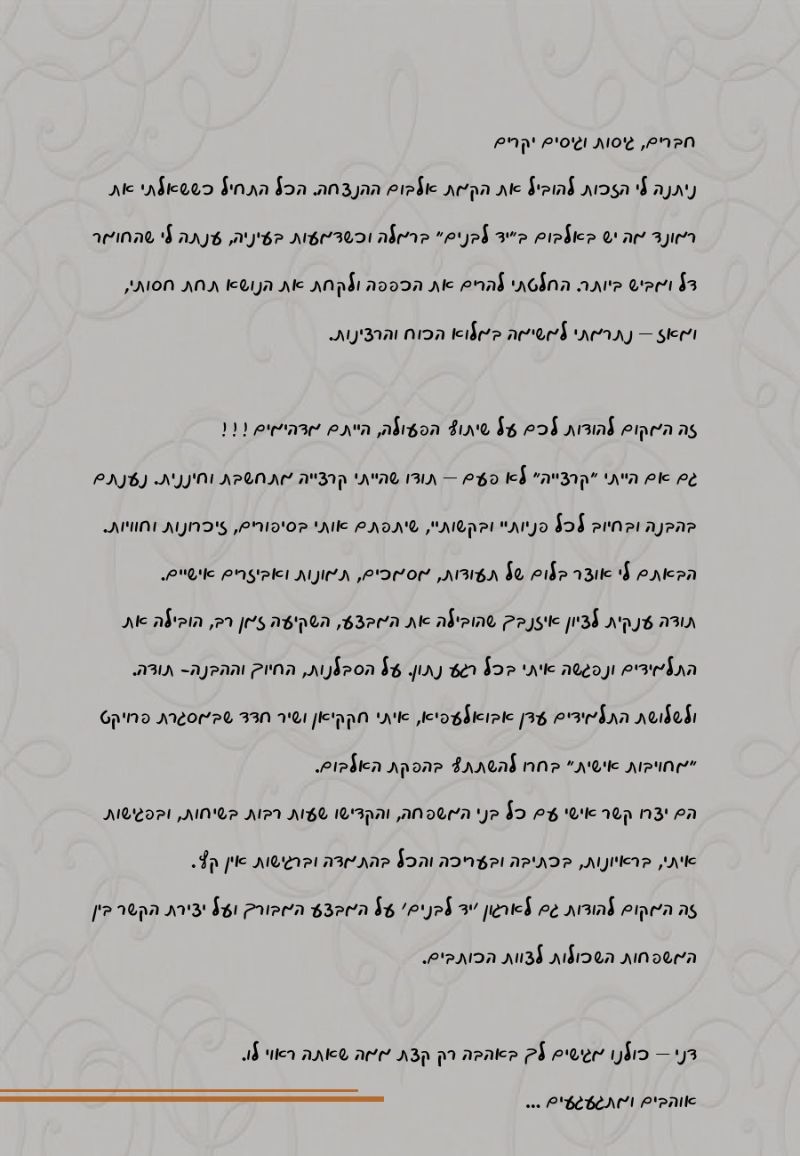 חברים, גיסות וגיסים יקרים
ניתנה לי הזכות להוביל את הקמת אלבום ההנצחה. הכל התחיל כששאלתי את
רמונד מה יש באלבום ב״יד לבנים״ ברמלה וכשדמעות בעיניה, ענתה לי שהחומר
דל ומביש ביותר. החלטתי להרים את הכפפה ולקחת את הנושא תחת חסותי,
ומאז – נתרמתי למשימה במלוא הכוח והרצינות.
זה המקום להודות לכם על שיתוף הפעולה, הייתם מדהימים !!!
גם אם הייתי ״קרצייה״ לא פעם – תודו שהייתי קרצייה מתחשבת וחיננית. נענתם
בהבנה ובחיוב לכל פניותיי ובקשותיי, שיתפתם אותי בסיפורים, זיכרונות וחוויות.
הבאתם לי אוצר בלום של תעודות, מסמכים, תמונות ואביזרים אישיים.
תודה ענקית לציון איזנבך שהובילה את המבצע, השקיעה זמן רב, הובילה את
התלמידים ונפגשה איתי בכל רגע נתון. על הסבלנות, החיוך וההבנה- תודה.
ולשלושת התלמידים עדן אבואלעפיא, איתי חקקיאן ושיר חדד שבמסגרת פרויקט
״מחויבות אישית״ בחרו להשתתף בהפקת האלבום.
הם יצרו קשר אישי עם כל בני המשפחה, והקדישו שעות רבות בשיחות, ובפגישות
איתי, בראיונות, בכתיבה ובעריכה והכל בהתמדה וברגישות אין קץ.
זה המקום להודות גם לארגון ׳יד לבנים׳ על המבצע המבורך ועל יצירת הקשר בין
המשפחות השכולות לצוות הכותבים.
דני – כולנו מגישים לך באהבה רק קצת ממה שאתה ראוי לו.
אוהבים ומתגעגעים ...